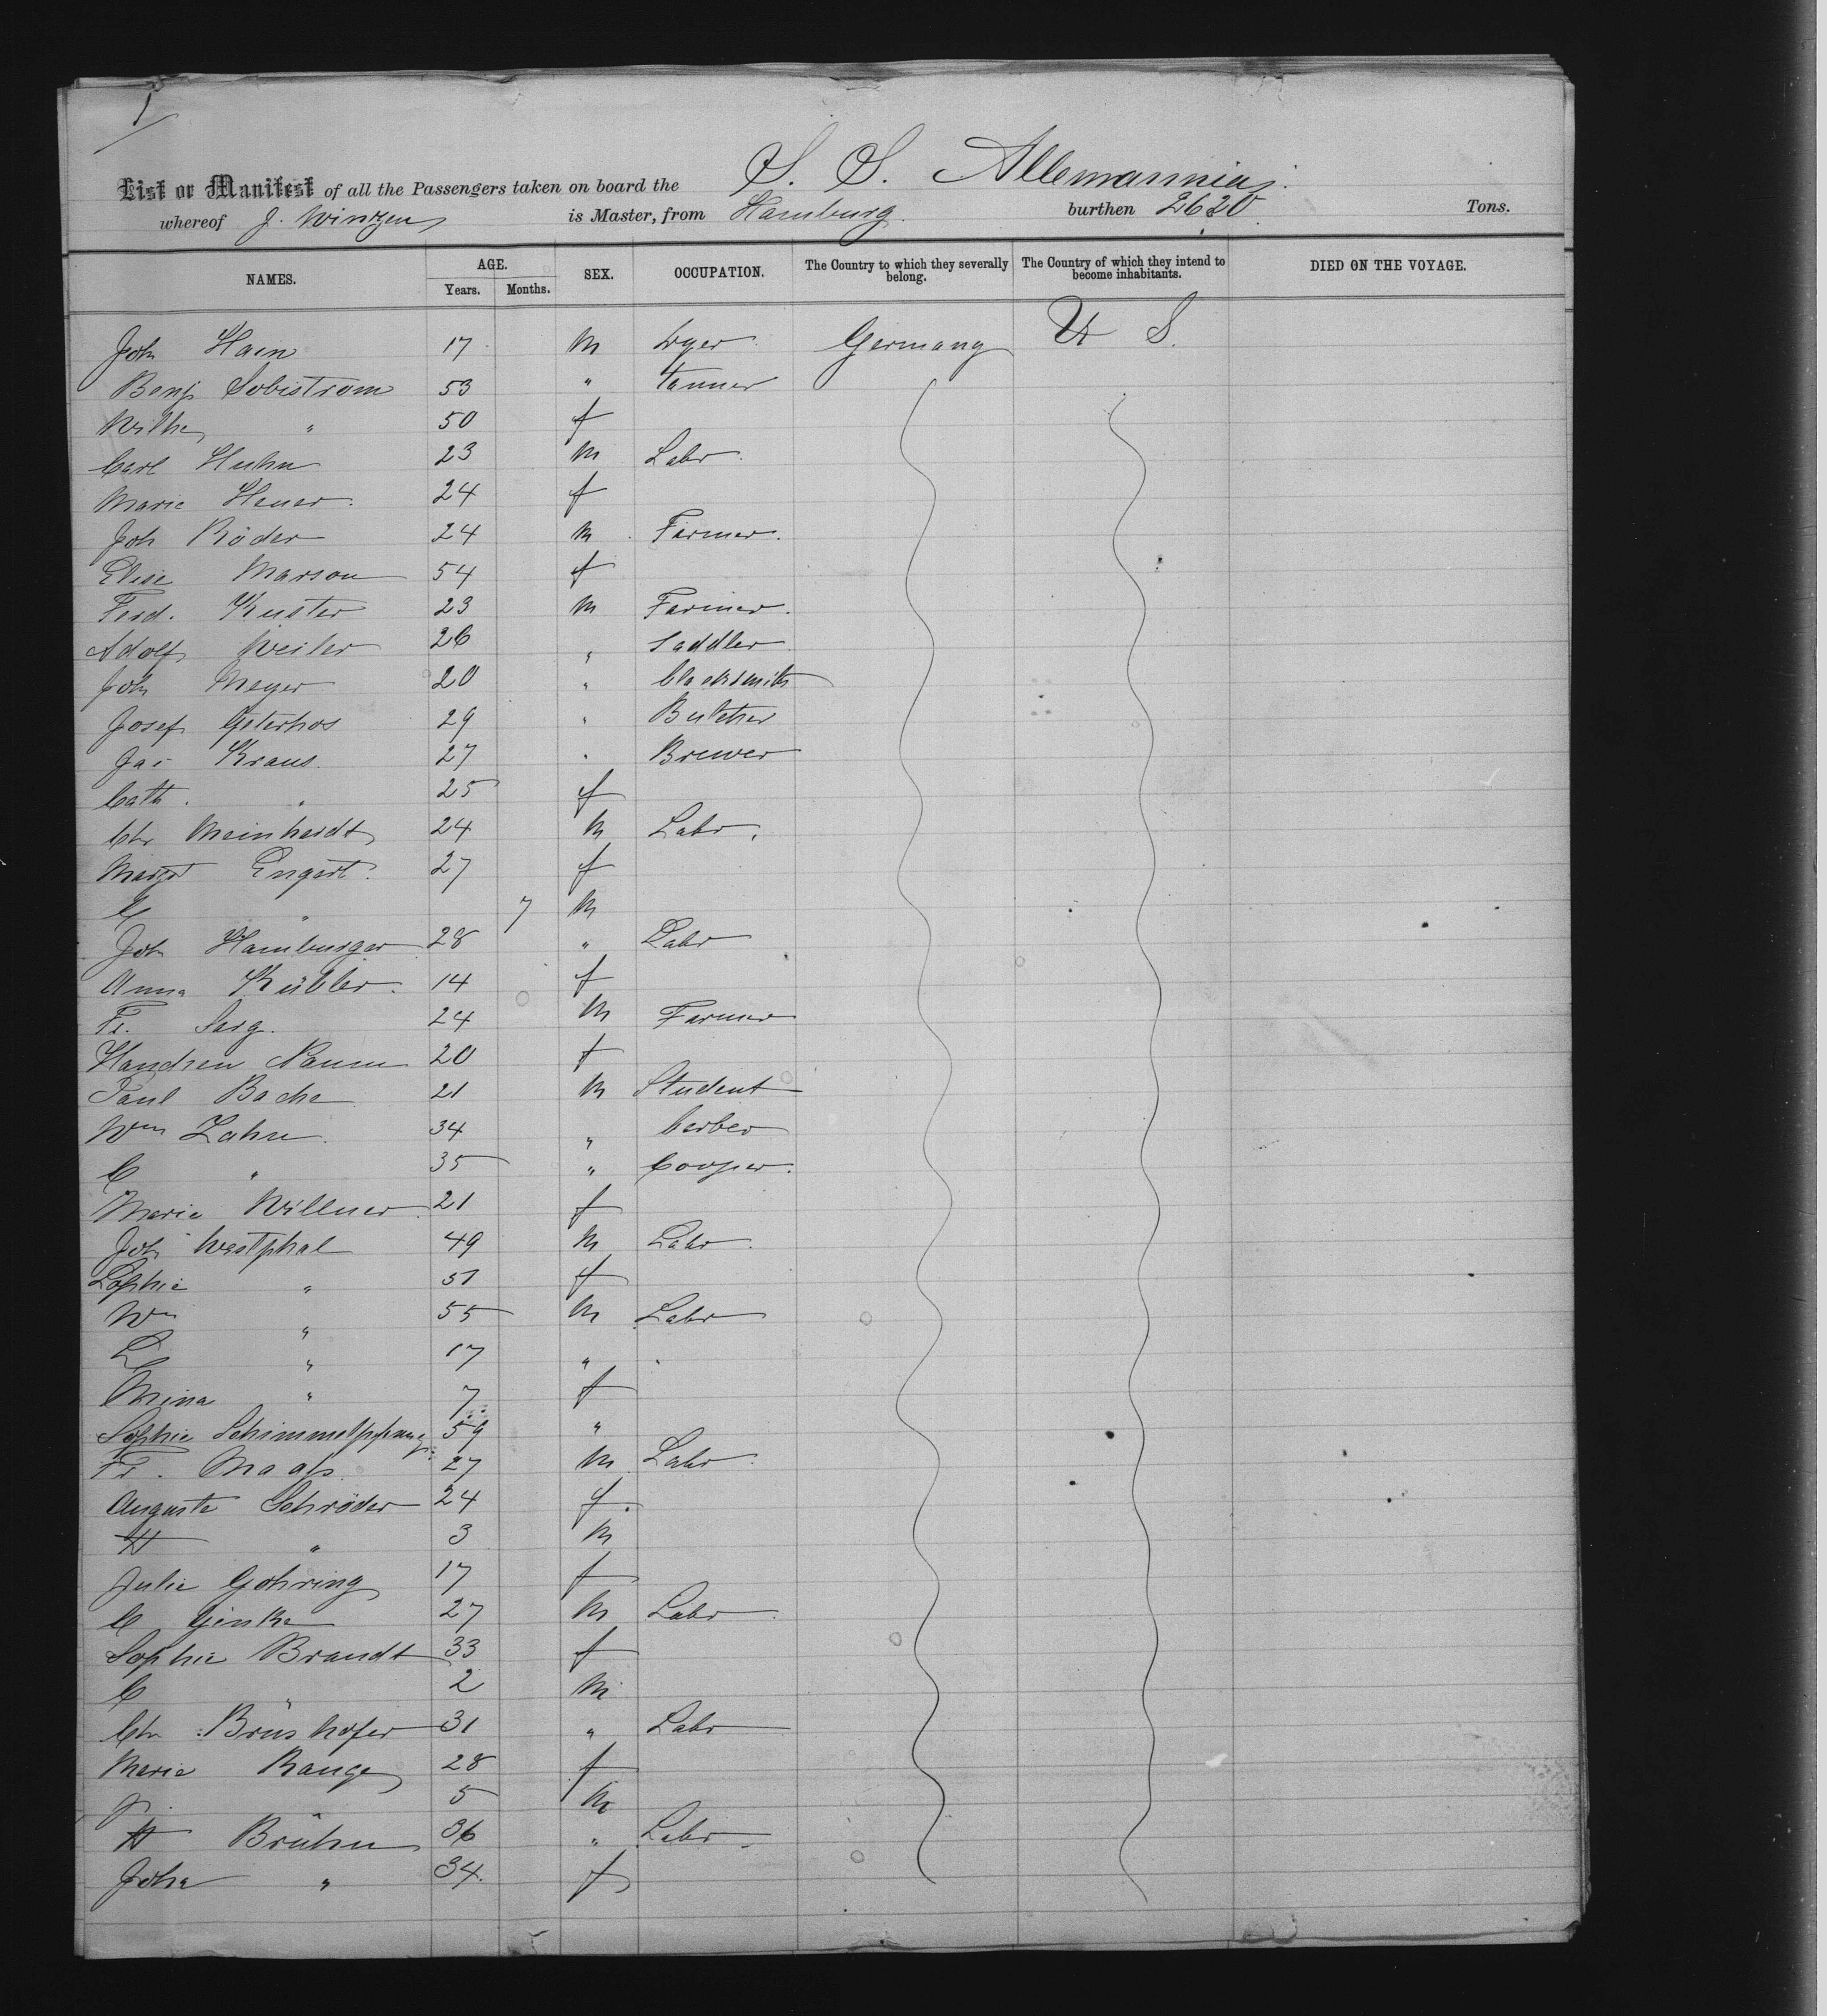 1
List or Manifest of all the Passengers taken on board the S. S. Allemannia
whereof J. Winzen is Master, from Hamburg burthen 2620 Tons.
NAMES. AGE. Years. Months. SEX. OCCUPATION. The Country to which they severally belong. The Country of which they intend to become inhabitants. DIED ON THE VOYAGE.
Joh Hain 17 m Dyer Germany U S.
Benj Sobistrom 53 " tanner
Wilhe " 50 f
Carl Huhn 23 m Labr.
Marie Heuer. 24 f
Joh Röder 24 m Farmer.
Elise Marson 54 f
Ferd. Kuster 23 m Farmer.
Adolf Weiler 26 " Saddler
Joh Meyer 20 " blacksmith
Josef 29 " Butcher
Jac Kraus. 27 " Brewer
Cath. " 25 f
Chr Meinhardt 24 m Labr.
Margt Engert. 27 f
C " 7 m
Joh Hamburger 28 " Labr
Anna Kübler. 14 f
Fr. Sarg. 24 m Farmer
Naum 20 f
Paul Bache 21 m Student
Wm Zahn. 34 " barber
C " 35 " Cooper.
Marie Willner 21 f
Joh Westphal 49 m Labr.
Sophie " 51 f
Wm " 55 m Labr
L " 17 " "
Mina " 7 f
Sophie Schimmelpfennig 59 "
Fr. Maass. 27 m Labr.
Auguste Schröder 24 f.
H " 3 m
Julie Gohring 17 f
C Ginke 27 m Labr.
Sophie Brandt 33 f
C " 2 m
Chr. Brüshofer 31 " Labr
Marie Range 28 f
J. 5 m
H Brühn 36 " Labr.
Joha " 34. f